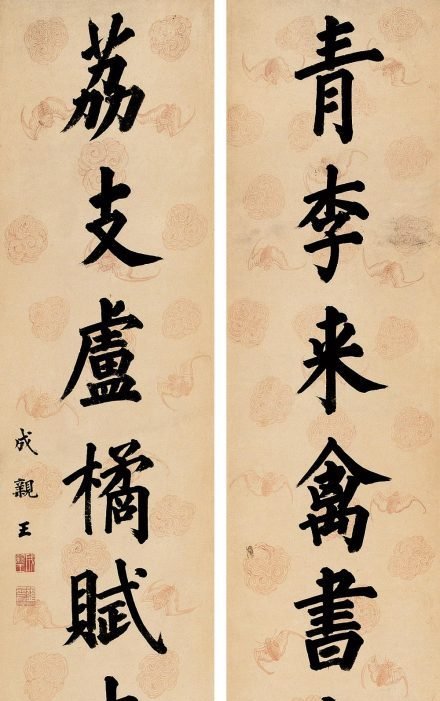 青李来禽書
荔支盧橘賦
成親王